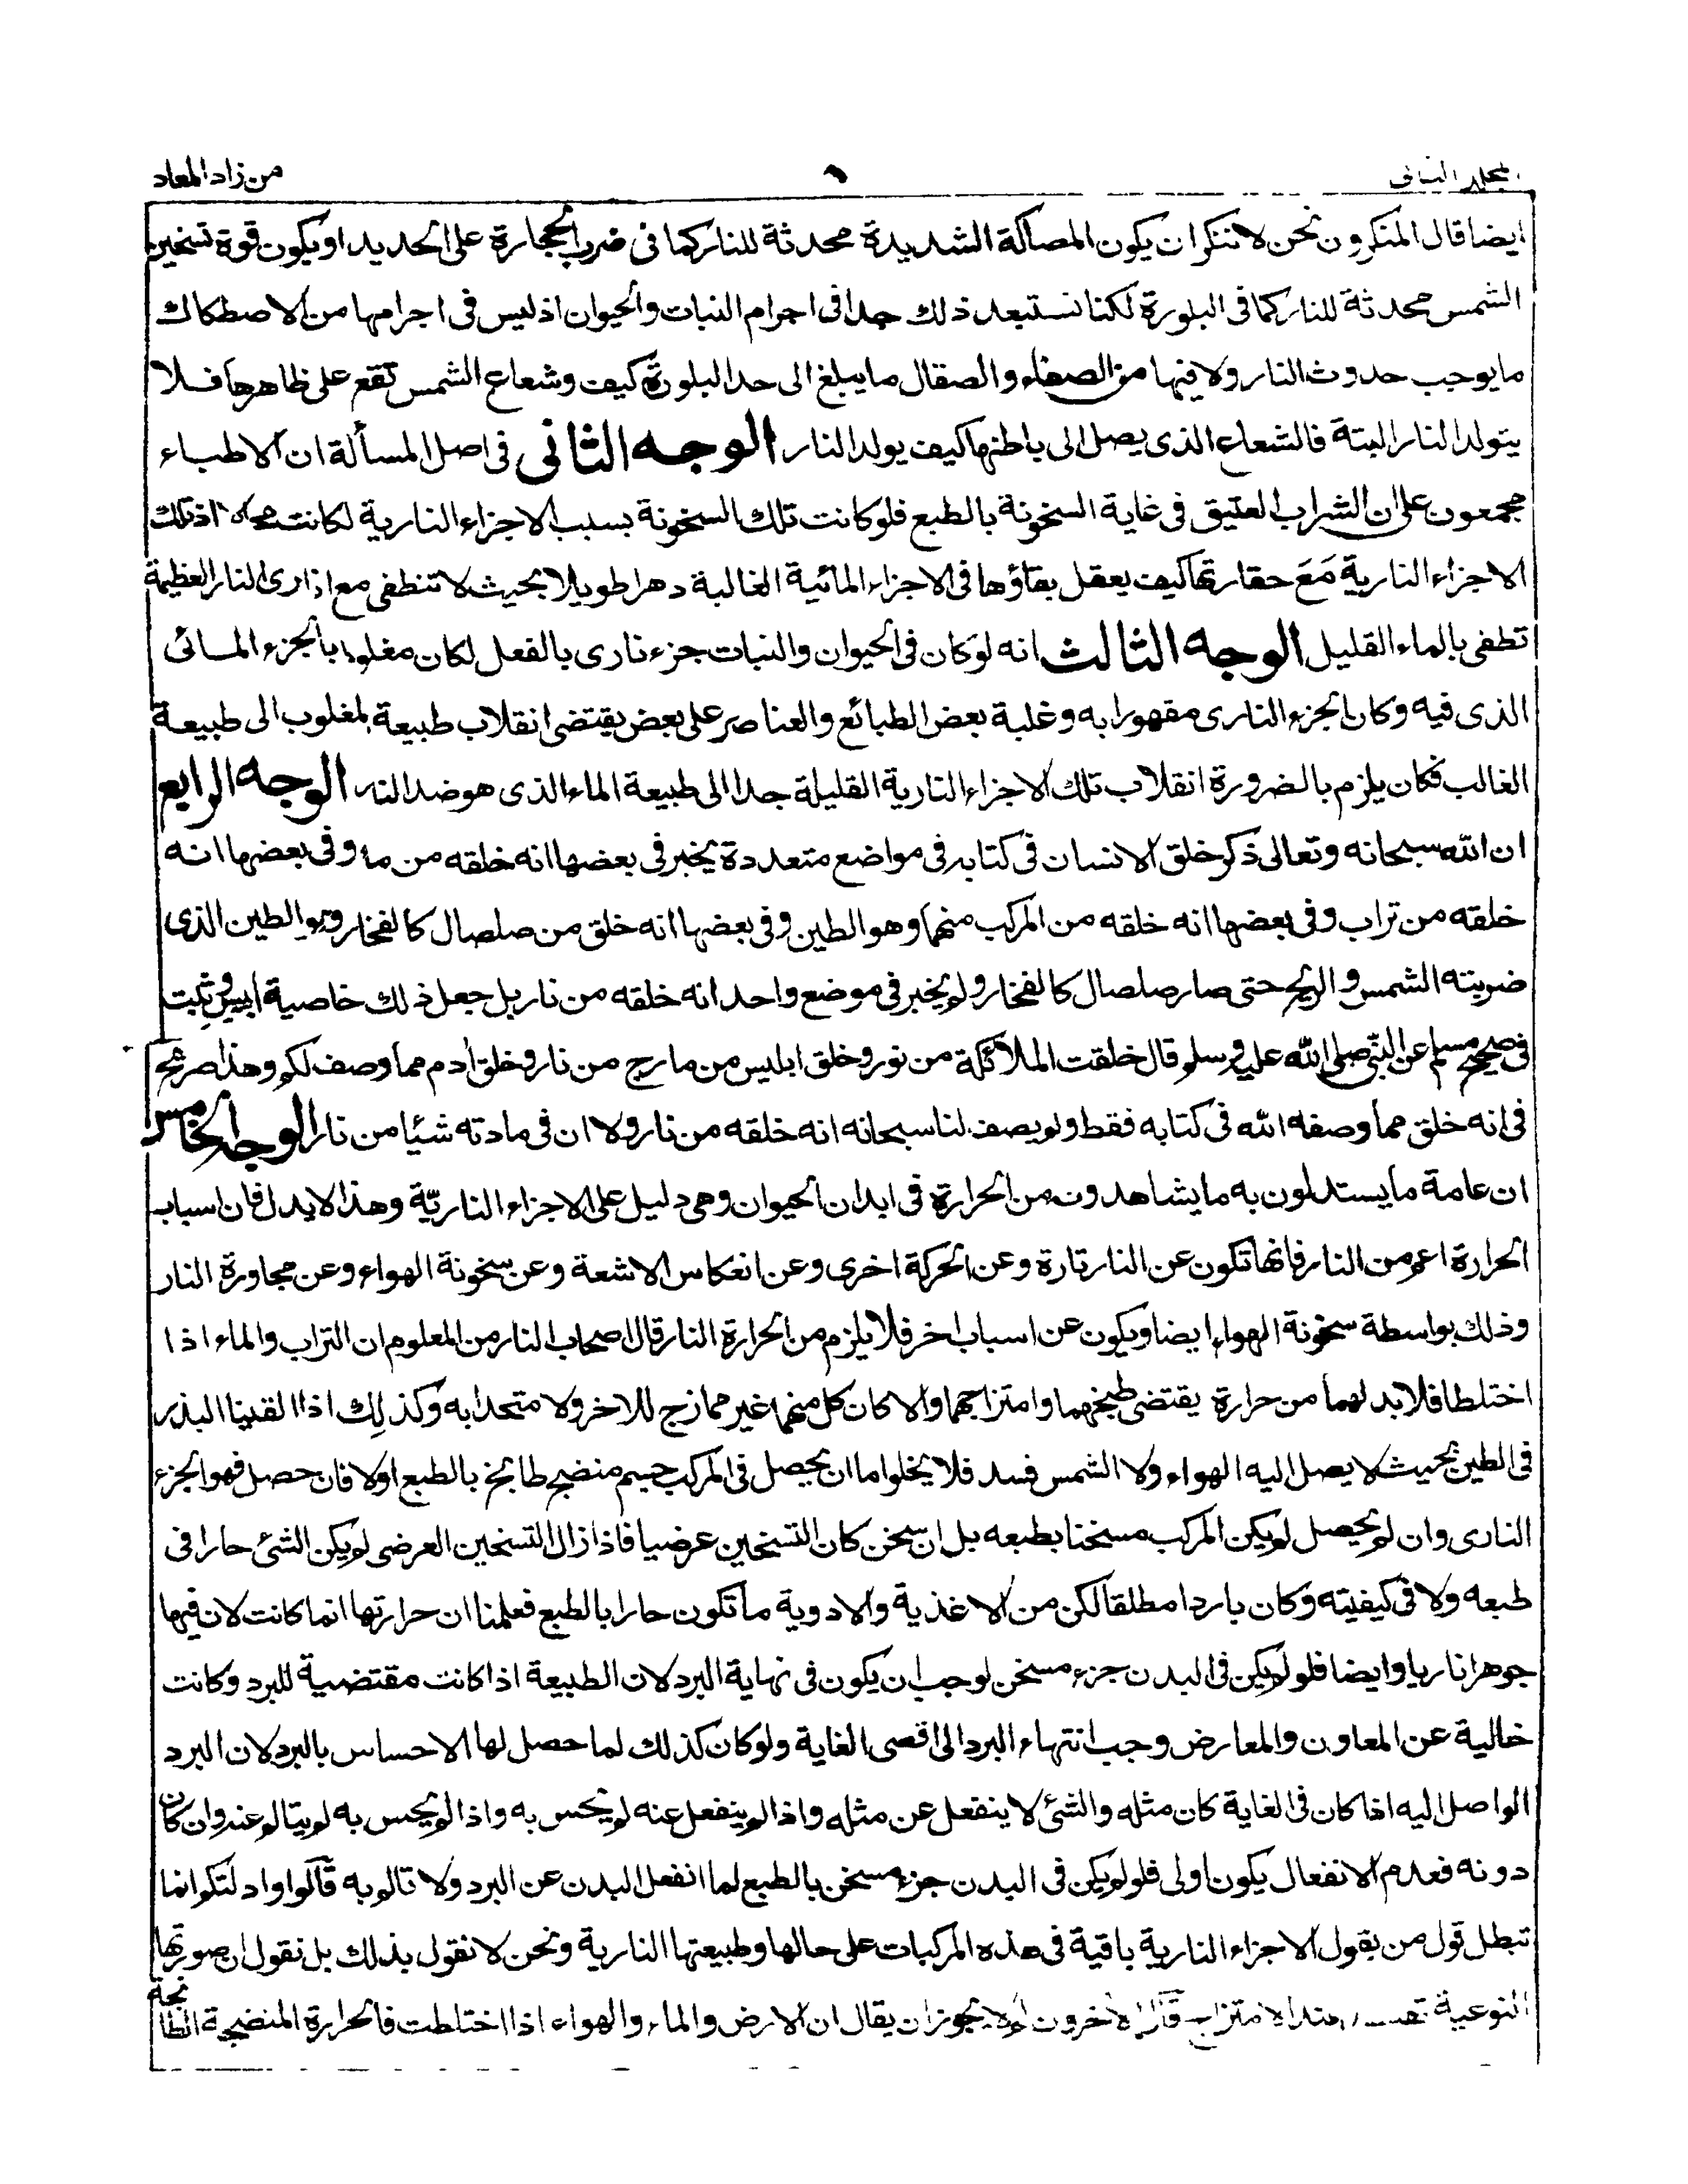 المجلد الثانى
٩
من زاد المعاد
ايضا قال المنكرون نحن لا ننكر ان يكون المصاكة الشديدة محدثة للنار كما فى ضرب الحجارة على الحديد او يكون قوة تسخين
الشمس محدثة للنار كما فى البلورة لكنا نستبعد ذلك جدا فى اجرام النبات والحيوان اذ ليس فى اجرامها من الاصطكاك
ما يوجب حدوث النار ولا فيها من الصفاء والصقال ما يبلغ الى حد البلورة كيف وشعاع الشمس تقع على ظاهرها فلا
يتولد النار البتة فالشعاع الذى يصل الى باطنها كيف يولد النار الوجه الثانى فى اصل المسألة ان الاطباء
مجمعون على ان الشراب العتيق فى غاية السخونة بالطبع فلو كانت تلك السخونة بسبب الاجزاء النارية لكانت اذ تلك
الاجزاء النارية مَعَ حقارتها كيف يعقل بقاؤها فى الاجزاء المائية الغالبة دهرا طويلا بحيث لا تنطفى مع اذا رى النار العظيمة
تطفى بالماء القليل الوجه الثالث انه لو كان فى الحيوان والنبات جزء نارى بالفعل لكان مغلوبا بالجزء المائى
الذى فيه وكان الجزء النارى مقهورا به وغلبة بعض الطبائع والعناصر على بعض يقتضى انقلاب طبيعة المغلوب الى طبيعة
الغالب فكان يلزم بالضرورة انقلاب تلك الاجزاء النارية القليلة جدا الى طبيعة الماء الذى هو ضد النار الوجه الرابع
ان الله سبحانه وتعالى ذكر خلق الانسان فى كتابه فى مواضع متعددة يخبر فى بعضها انه خلقه من ماء وفى بعضها انه
خلقه من تراب وفى بعضها انه خلقه من المركب منهما وهو الطين وفى بعضها انه خلق من صلصال كالفخار وهو الطين الذى
ضربته الشمس والريح حتى صار صلصال كالفخار ولم يخبر فى موضع واحد انه خلقه من نار بل جعل ذلك خاصية ابليس وثبت
فى صحيح مسلم عن النبى صلى الله عليه وسلم قال خلقت الملائكة من نور وخلق ابليس من مارج من نار وخلق آدم مما وصف لكم وهذا صريح
فى انه خلق مما وصفه الله فى كتابه فقط ولم يصف لنا سبحانه انه خلقه من نار ولا ان فى مادته شيئا من نار الوجه الخامس
ان عامة ما يستدلون به ما يشاهدون من الحرارة فى ابدان الحيوان وهى دليل على الاجزاء الناريّة وهذا لا يدل فان اسباب
الحرارة اعم من النار فانها تكون عن النار تارة وعن الحركة اخرى وعن انعكاس الاشعة وعن سخونة الهواء وعن مجاورة النار
وذلك بواسطة سخونة الهواء ايضا ويكون عن اسباب اخر فلا يلزم من الحرارة النار قال اصحاب النار من المعلوم ان التراب والماء اذا
اختلطا فلا بد لهما من حرارة يقتضى طبخهما وامتزاجهما والا كان كل منهما غير ممازج للاخر ولا متحدا به وكذلك اذا القينا البذر
فى الطين بحيث لا يصل اليه الهواء ولا الشمس فسد فلا يخلوا ما ان يحصل فى المركب جسم منضج طابخ بالطبع اولا فان حصل فهو الجزء
النارى وان لم يحصل لم يكن المركب مسخنا بطبعه بل ان سخن كان التسخين عرضيا فاذا زال التسخين العرضى لم يكن الشئ حارا فى
طبعه ولا فى كيفيته وكان باردا مطلقا لكن من الاغذية والادوية ما تكون حارا بالطبع فعلمنا ان حرارتها انما كانت لان فيها
جوهرا ناريا وايضا فلو لم يكن فى البدن جزء مسخن لوجب ان يكون فى نهاية البرد لان الطبيعة اذا كانت مقتضية للبرد وكانت
خالية عن المعاون والمعارض وجب انتهاء البرد الى اقصى الغاية ولو كان كذلك لما حصل لها الاحساس بالبرد لان البرد
الواصل اليه اذا كان فى الغاية كان مثله والشئ لا ينفعل عن مثله واذا لم ينفعل عنه لم يحس به واذا لم يحس به لم يتالم عنه وان كان
دونه فعدم الانفعال يكون اولى فلو لم يكن فى البدن جزء مسخن بالطبع لما انفعل البدن عن البرد ولا تالم به قالوا وادلتكم انما
تبطل قول من يقول الاجزاء النارية باقية فى هذه المركبات على حالها وطبيعتها النارية ونحن لا نقول بذلك بل نقول ان صورتها
النوعية تفسد عند الامتزاج قال الاخرون لم لا يجوز ان يقال ان الارض والماء والهواء اذا اختلطت فالحرارة المنضجة الطابخة